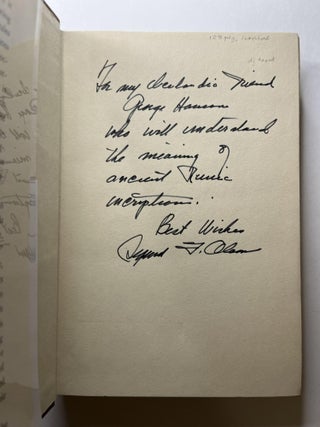 To my Icelandic Friend
George Hanson
who will understand
the meaning of
ancient Runic
incriptions.
Best Wishes
Sigurd F. Olson